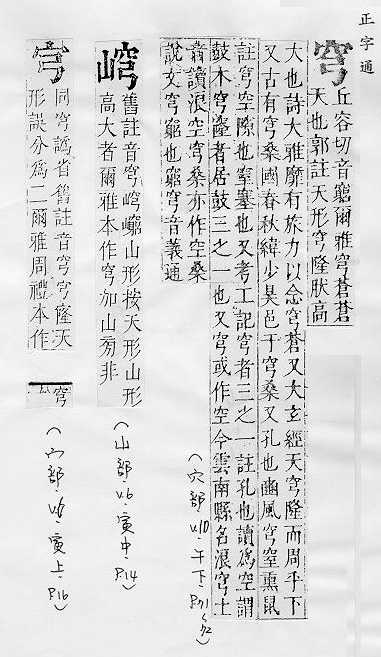 正字通
穹
丘容切音爾雅穹蒼蒼
天也郭註天形穹隆狀高
大也詩大雅靡有旅力以念穹蒼又大玄經天穹隆而周乎下
又古有穹桑國春秋緯少昊邑于穹桑又孔也豳風穹窒熏鼠
註穹空隙也窒塞也又考工記穹者三之一註孔也讀爲空謂
鼓木穹隆者居鼓三之一也又穹或作空今雲南縣名浪穹土
音讀浪空穹桑亦作空桑
說文穹竆也竆穹音義通
(穴部.v.10.午下.P.71~72)
舊註音穹山形按天形山形
高大者爾雅本作穹加山旁非
(山部.v.6.寅中.P.14)
宆
同穹譌省舊註音穹穹窿天
形誤分爲二爾雅周禮本作
穹
(宀部.v.6.寅上.P.16)